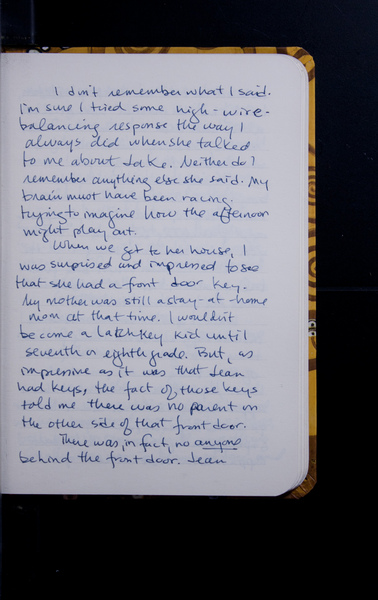 I don't remember what I said.
I'm sure I tried some high-wire-
balancing response the way I
always did when she talked
to me about Jake. Neither do I
remember anything else she said. My
brain must have been racing.
trying to imagine how the afternoon
might play out.
When we get to her house, I
was surprised and impressed to see
that she had a front door key.
My mother was still a stay-at-home
mom at that time. I wouldn't
become a latchkey kid until
seventh or eighth grade. But, as
impressive as it was that Jean
had keys, the fact of those keys
told me there was no parent on
the other side of that front door.
There was, in fact, no anyone
behind the front door. Jean